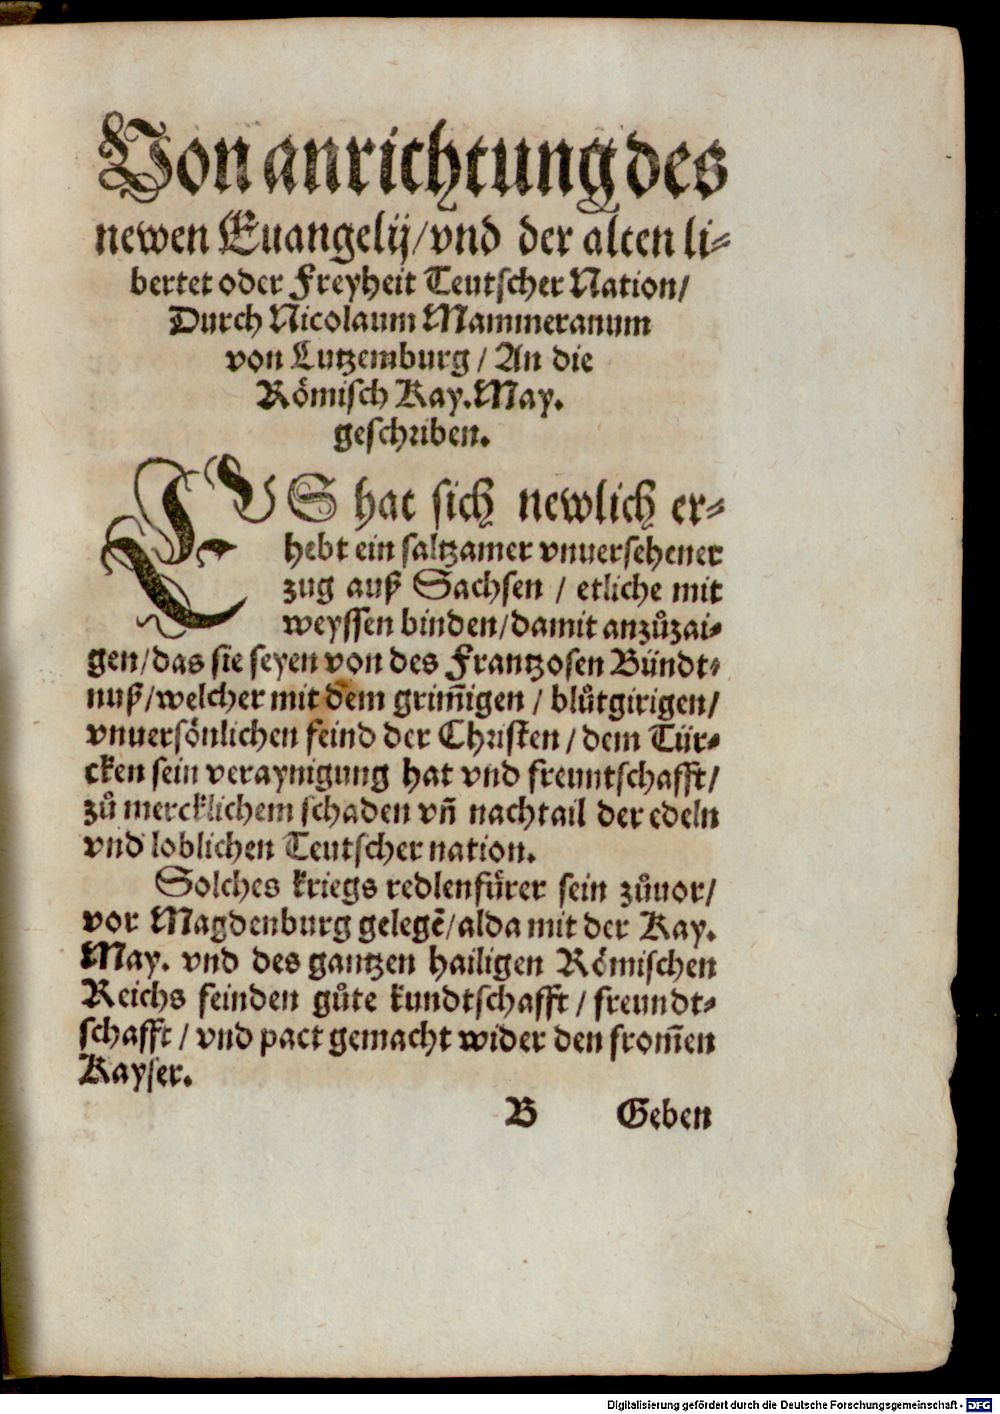 Von anrichtung des
newen Euangelij/vnd der alten li⸗
bertet oder Freyheit Teutscher Nation/
Durch Nicolaum Mammeranum
von Lutzemburg / An die
Römisch Kay. May.
geschriben.
ES hat sich newlich er⸗
hebt ein saltzamer vnuersehener
zug auß Sachsen / etliche mit
weyssen binden/damit anzůzai⸗
gen/das sie seyen von des Frantzosen Bündt⸗
nuß/welcher mit dem grim̃igen / blůtgirigen/
vnuersönlichen feind der Christen / dem Tür⸗
cken sein veraynigung hat vnd freuntschafft/
zů mercklichem schaden vñ nachtail der edeln
vnd loblichen Teutscher nation.
Solches kriegs redlenfürer sein zůuor/
vor Magdenburg gelegẽ/alda mit der Kay.
May. vnd des gantzen hailigen Römischen
Reichs feinden gůte kundtschafft / freundt⸗
schafft / vnd pact gemacht wider den from̃en
Kayser.
B Geben
Digitalisierung gefördert durch die Deutsche Forschungsgemeinschaft - DFG